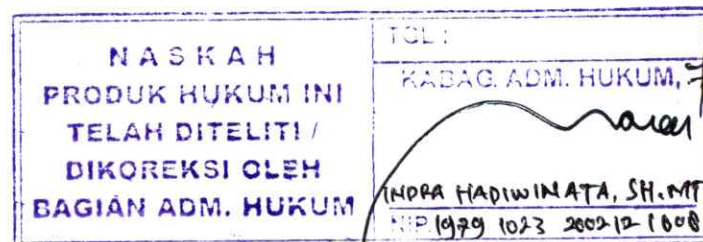 NASKAH
PRODUK HUKUM INI
TELAH DITELITI /
DIKOREKSI OLEH
BAGIAN ADM. HUKUM
TGL :
KABAG. ADM. HUKUM,
INDRA HADIWINATA, SH.MT
NIP. 1979 1023 200212 1 008